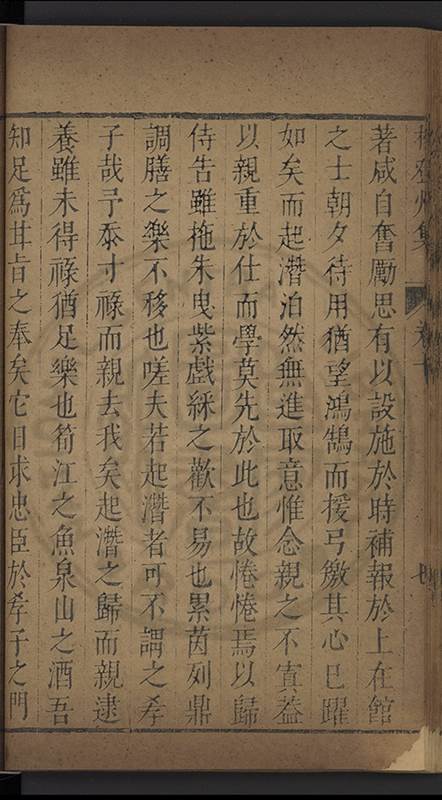 集
卷十
七
著咸自奮勵思有以設施於時補報於上在館
之士朝夕待用猶望鴻鵠而援弓繳其心已躍
如矣而起潛泊然無進取意惟念親之不寘蓋
以親重於仕而學莫先於此也故惓惓焉以歸
侍告雖拖朱曳紫戲綵之歡不易也累茵列鼎
調膳之樂不移也嗟夫若起潛者可不謂之孝
子哉予忝寸祿而親去我矣起潛之歸而親逮
養雖未得祿猶足樂也筍江之魚泉山之酒吾
知足爲甘旨之奉矣它日求忠臣於孝子之門